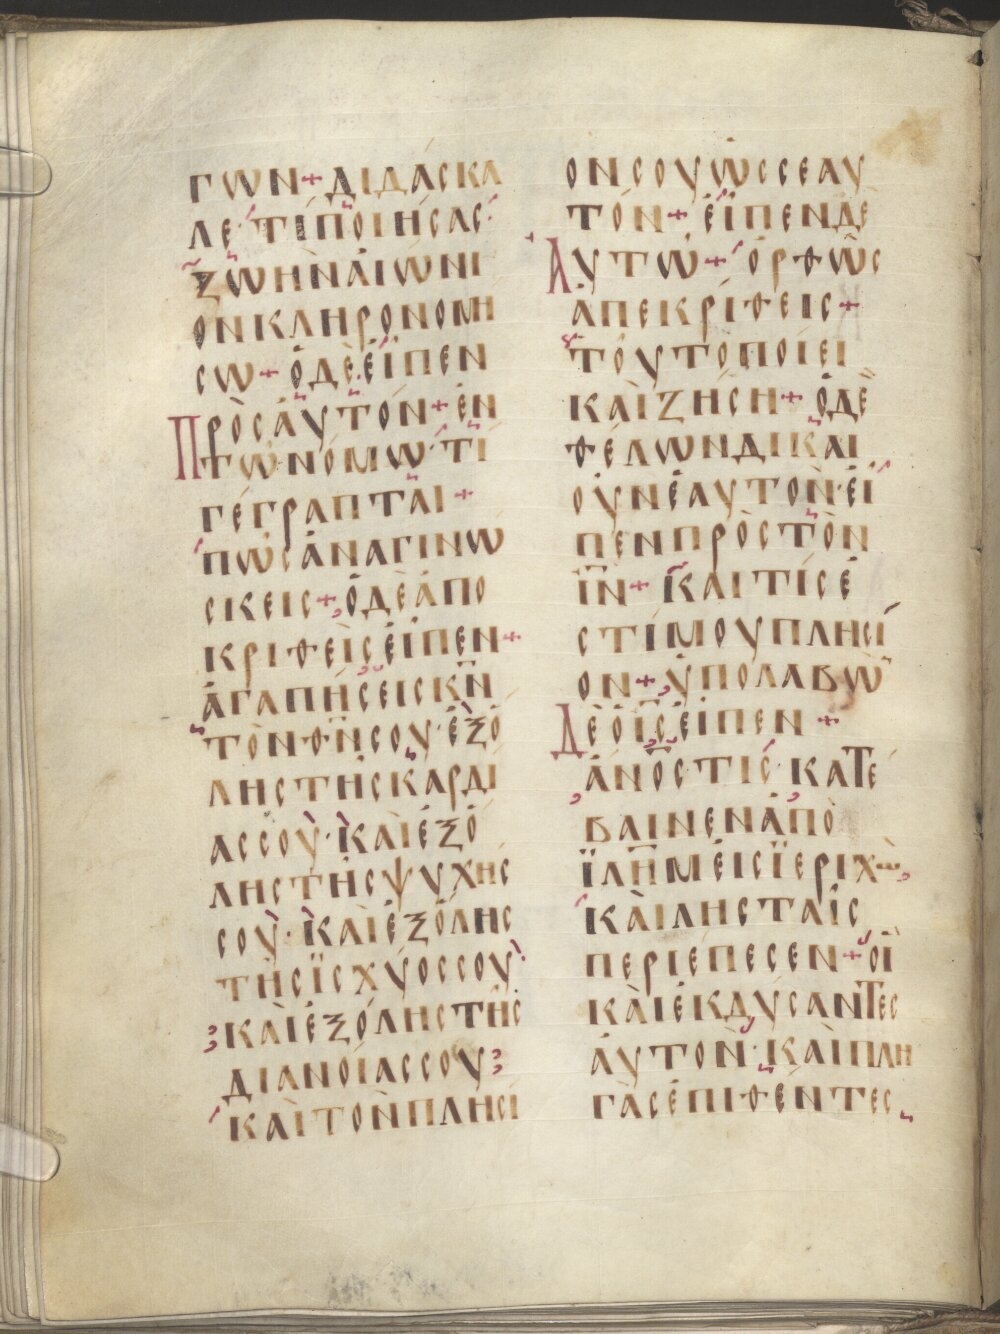 ΓΩΝ + ΔΙΔΑΣΚΑ
ΛΕ· ΤΙ ΠΟΙΗΣΑΣ
ΖΩΗΝ ΑΙΩΝΙ
ΟΝ ΚΛΗΡΟΝΟΜΗ
ΣΩ + Ο ΔΕ ΕΙΠΕΝ
ΠΡΟΣ ΑΥΤΟΝ + ΕΝ
ΤΩ ΝΟΜΩ· ΤΙ
ΓΕΓΡΑΠΤΑΙ +
ΠΩΣ ΑΝΑΓΙΝΩ
ΣΚΕΙΣ + Ο ΔΕ ΑΠΟ
ΚΡΙΘΕΙΣ ΕΙΠΕΝ +
ΑΓΑΠΗΣΕΙΣ Κ̅Ν̅
ΤΟΝ Θ̅Ν̅ ΣΟΥ· ΕΞ Ο
ΛΗΣ ΤΗΣ ΚΑΡΔΙ
ΑΣ ΣΟΥ· ΚΑΙ ΕΞ Ο
ΛΗΣ ΤΗΣ ΨΥΧΗΣ
ΣΟΥ· ΚΑΙ ΕΞ ΟΛΗΣ
ΤΗΣ ΪΣΧΥΟΣ ΣΟΥ
ΚΑΙ ΕΞ ΟΛΗΣ ΤΗΣ
ΔΙΑΝΟΙΑΣ ΣΟΥ
ΚΑΙ ΤΟΝ ΠΛΗΣΙ
ΟΝ ΣΟΥ ΩΣ ΣΕΑΥ
ΤΟΝ + ΕΙΠΕΝ ΔΕ
ΑΥΤΩ + ΟΡΘΩΣ
ΑΠΕΚΡΙΘΕΙΣ +
ΤΟΥΤΟ ΠΟΙΕΙ
ΚΑΙ ΖΗΣΗ + Ο ΔΕ
ΘΕΛΩΝ ΔΙΚΑΙ
ΟΥΝ ΕΑΥΤΟΝ· ΕΙ
ΠΕΝ ΠΡΟΣ ΤΟΝ
Ι̅Ν̅ + ΚΑΙ ΤΙΣ Ε
ΣΤΙ ΜΟΥ ΠΛΗΣΙ
ΟΝ + ΥΠΟΛΑΒΩ̅
ΔΕ Ο Ι̅Σ̅ ΕΙΠΕΝ +
Α̅Ν̅Ο̅Σ̅ ΤΙΣ· ΚΑΤΕ
ΒΑΙΝΕΝ ΑΠΟ
Ϊ̅Λ̅Η̅Μ̅ ΕΙΣ ΪΕΡΙΧΩ
ΚΑΙ ΛΗΣΤΑΙΣ
ΠΕΡΙΕΠΕΣΕΝ + ΟΪ
ΚΑΙ ΕΚΔΥΣΑΝΤΕΣ
ΑΥΤΟΝ· ΚΑΙ ΠΛΗ
ΓΑΣ ΕΠΙΘΕΝΤΕΣ